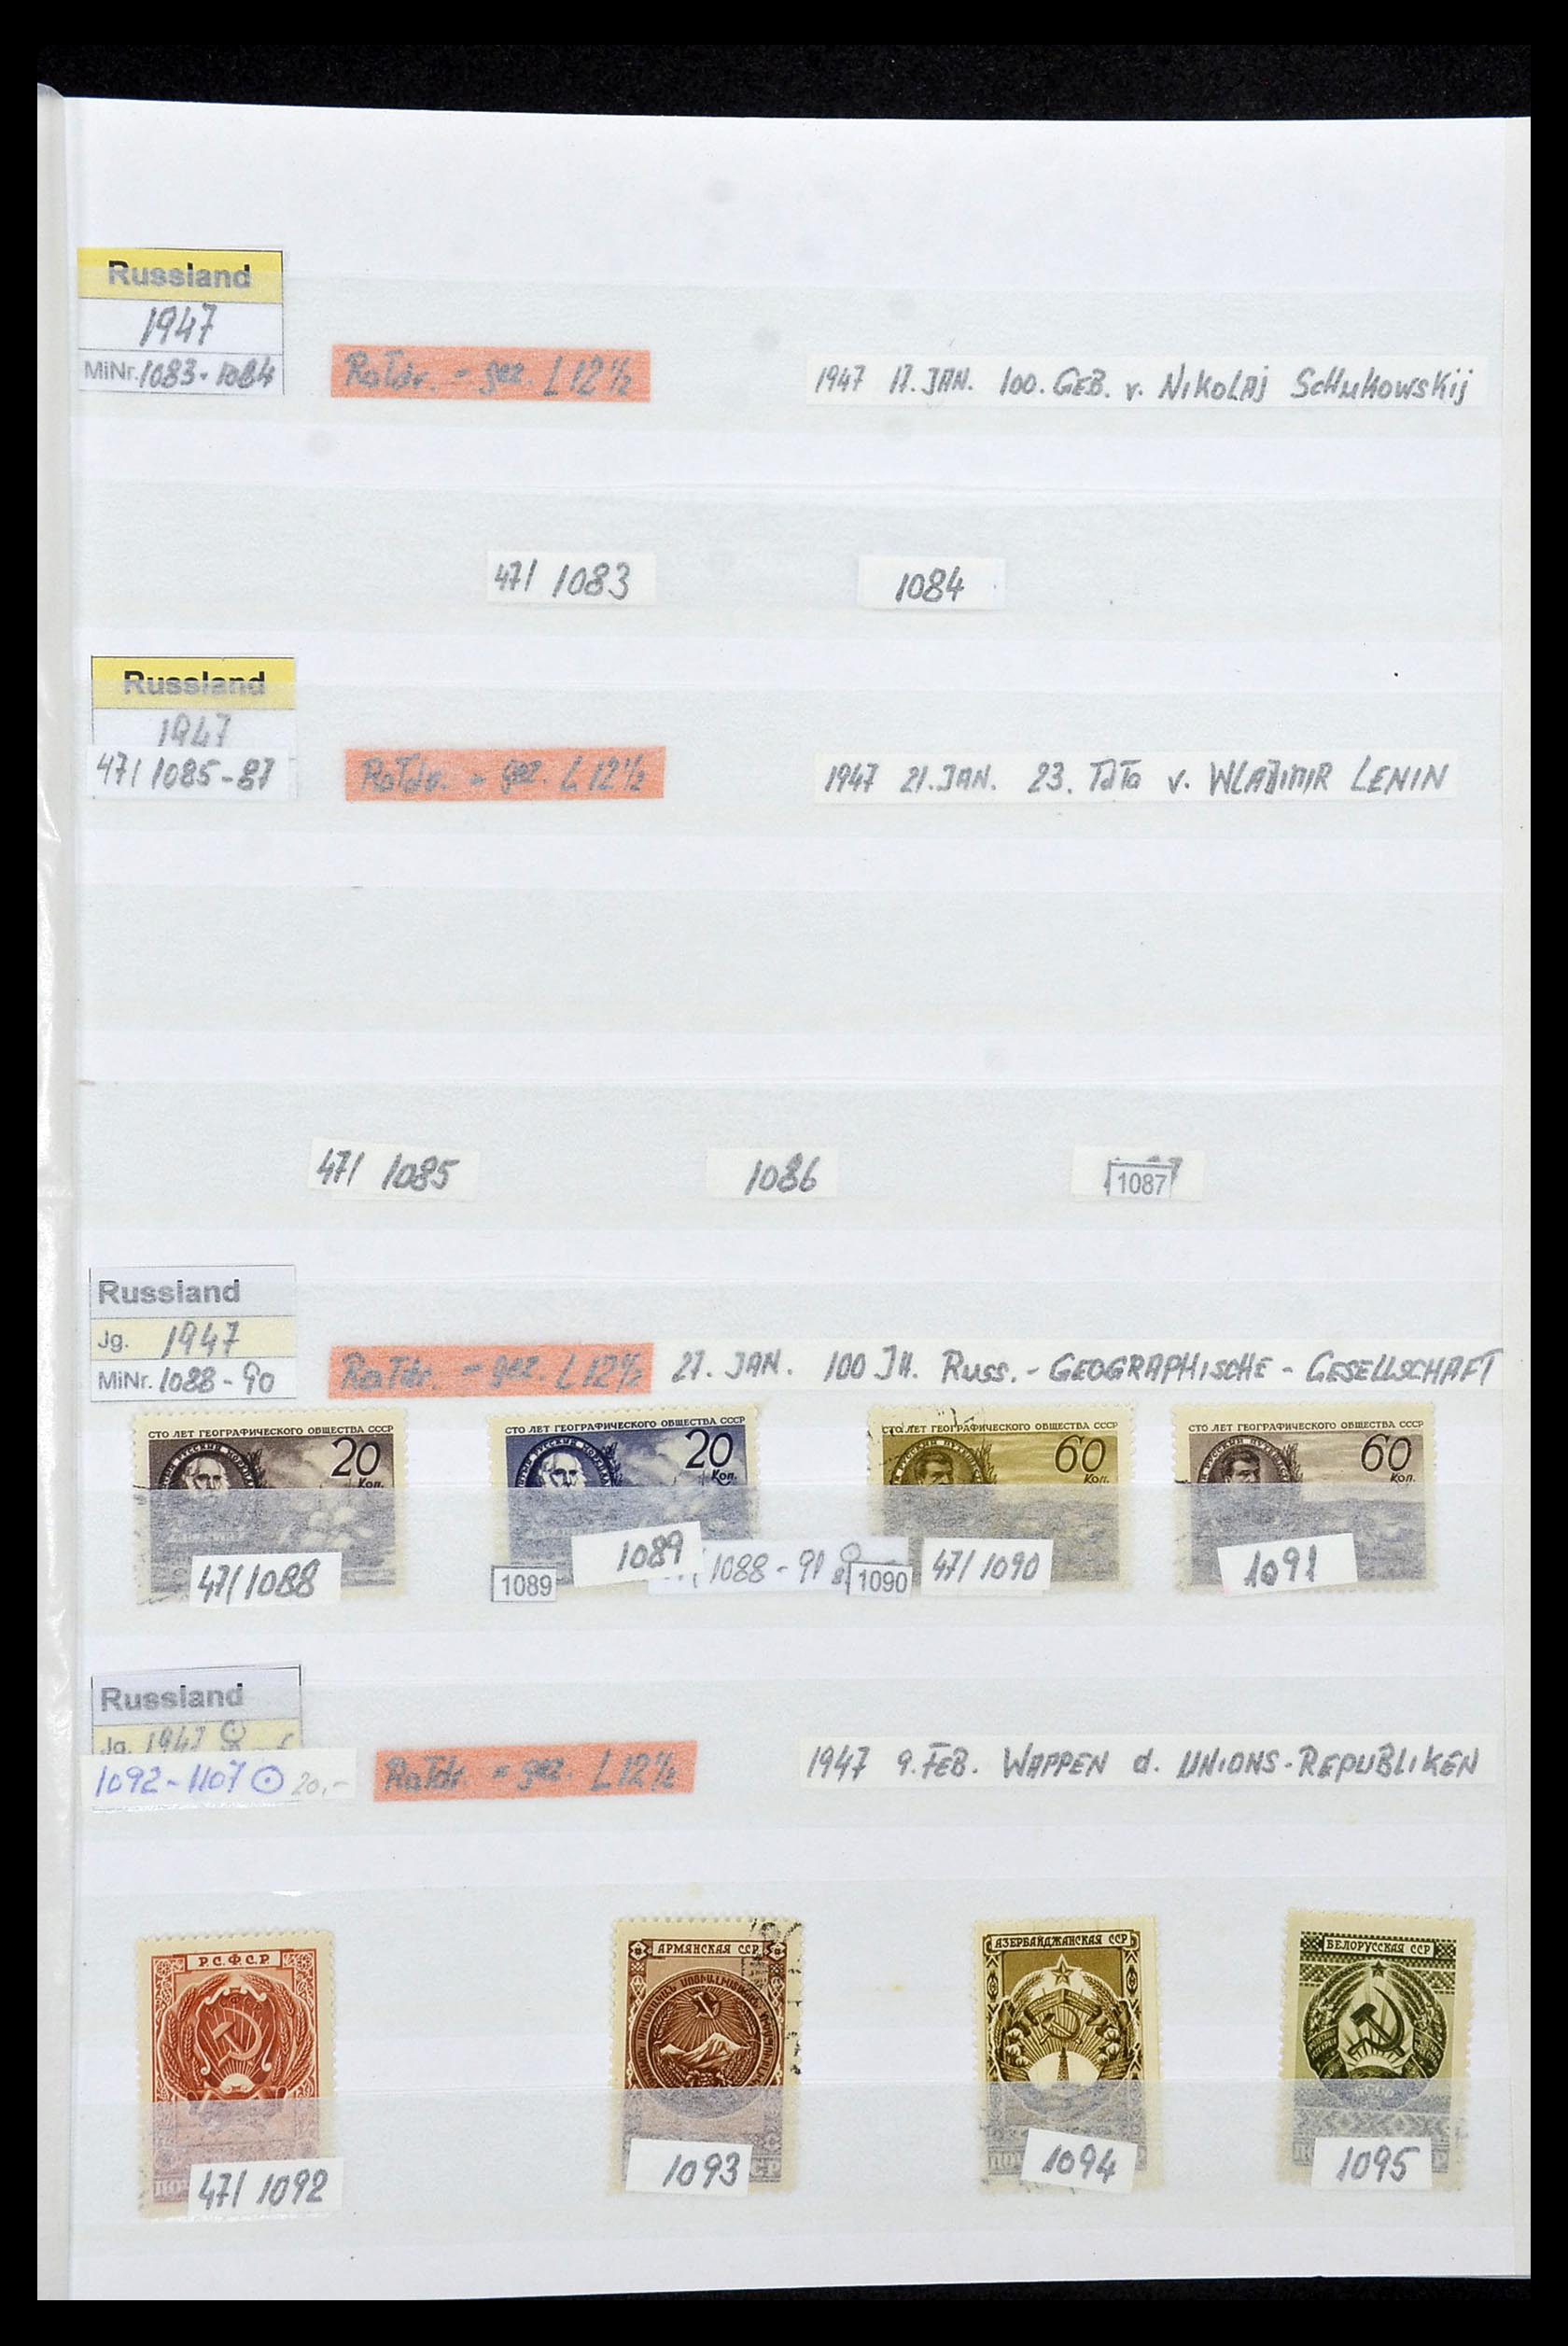 Russland
1947
MiNr. 1083-1084
RaTdr. - gez. L 12½
1947 17. JAN. 100. GEB. v. NIKOLAJ SCHUKOWSKIJ
47/ 1083
1084
Russland
1947
47/ 1085-87
RaTdr. - gez. L 12½
1947 21. JAN. 23. v. WLADIMIR LENIN
47/ 1085
1086
1087
Russland
Jg. 1947
MiNr. 1088-90
RaTdr. - gez. L 12½
27. JAN. 100 JH. RUSS.- GEOGRAPHISCHE - GESELLSCHAFT
СТО ЛЕТ ГЕОГРАФИЧЕСКОГО ОБЩЕСТВА СССР
20
Коп.
СТО ЛЕТ ГЕОГРАФИЧЕСКОГО ОБЩЕСТВА СССР
20
Коп.
СТО ЛЕТ ГЕОГРАФИЧЕСКОГО ОБЩЕСТВА СССР
60
Коп.
СТО ЛЕТ ГЕОГРАФИЧЕСКОГО ОБЩЕСТВА СССР
60
Коп.
47/1088
1089
1089
1088-91
1090
47/1090
1091
Russland
Jg. 1947
1092-1107 ⊙ 20,-
RaTdr. - gez. L 12½
1947 9. FEB. WAPPEN d. UNIONS-REPUBLIKEN
Р.С.Ф.С.Р.
АРМЯНСКАЯ ССР
АЗЕРБАЙДЖАНСКАЯ ССР
БЕЛОРУССКАЯ ССР
47/ 1092
1093
1094
1095